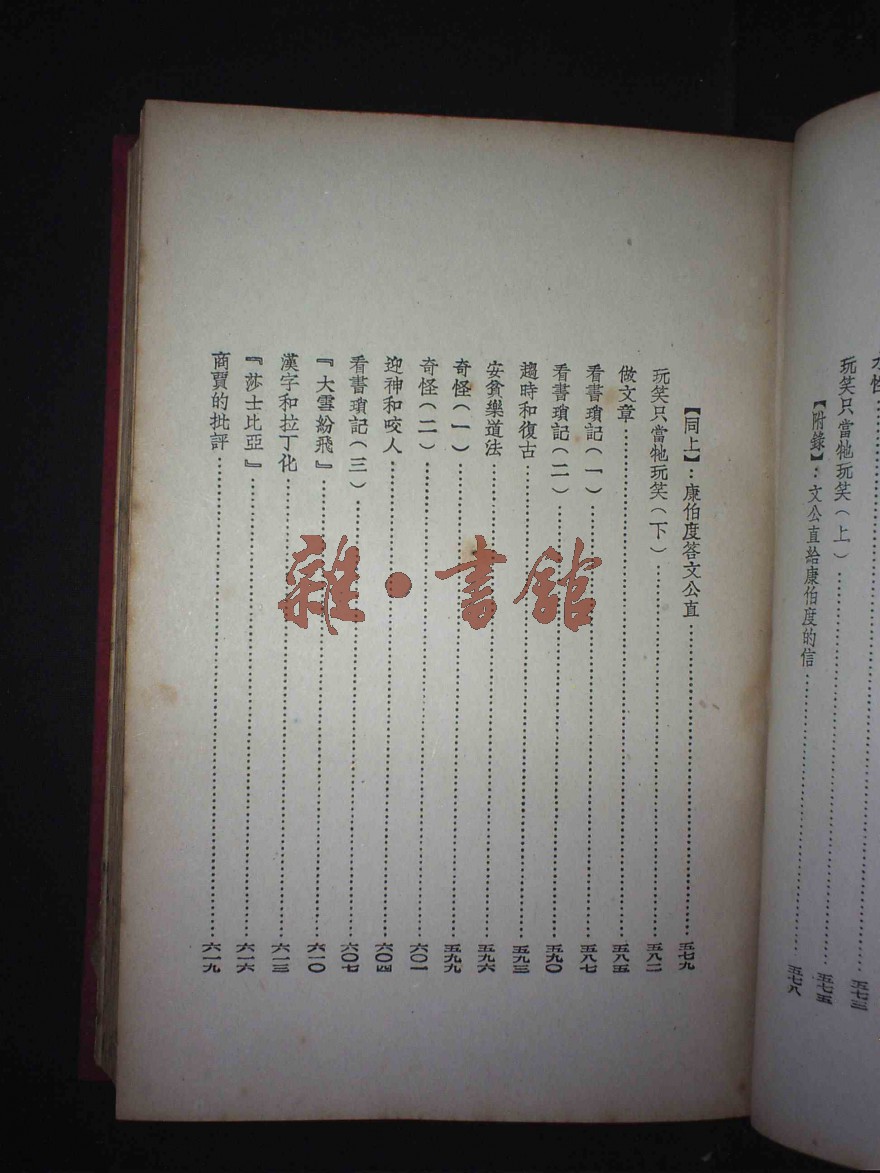 水性…五七三
玩笑只當牠玩笑(上)…五七五
【附錄】:文公直給康伯度的信…五七八
【同上】:康伯度答文公直…五七九
玩笑只當牠玩笑(下)…五八二
做文章…五八五
看書瑣記(一)…五八七
看書瑣記(二)…五九〇
趨時和復古…五九三
安貧樂道法…五九六
奇怪(一)…五九九
奇怪(二)…六〇一
迎神和咬人…六〇四
看書瑣記(三)…六〇七
『大雪紛飛』…六一〇
漢字和拉丁化…六一三
『莎士比亞』…六一六
商賈的批評…六一九
雜·書館